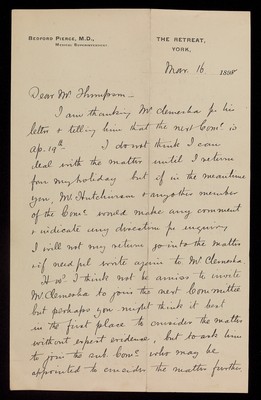 BEDFORD PIERCE, M.D.,
MEDICAL SUPERINTENDENT.
THE RETREAT,
YORK,
Mar. 16. 1898
Dear Mr Thompson —
I am thanking Mr Clemesha for his
letter & telling him that the next Comee. is
Ap. 19th. I do not think I can
deal with the matter until I return
from my holiday but if in the meantime
you, Mr Hutchinson & any other member
of the Comee. would make any comment
& indicate any direction for inquiry
I will on my return, go into the matter
& if need ful write again to Mr Clemesha.
It wd. I think not be amiss to invite
Mr Clemesha to join the next Committee
but perhaps you might think it best
in the first place to consider the matter
without expert evidence, but to ask him
to join the sub Comee. who may be
appointed to consider the matter further.